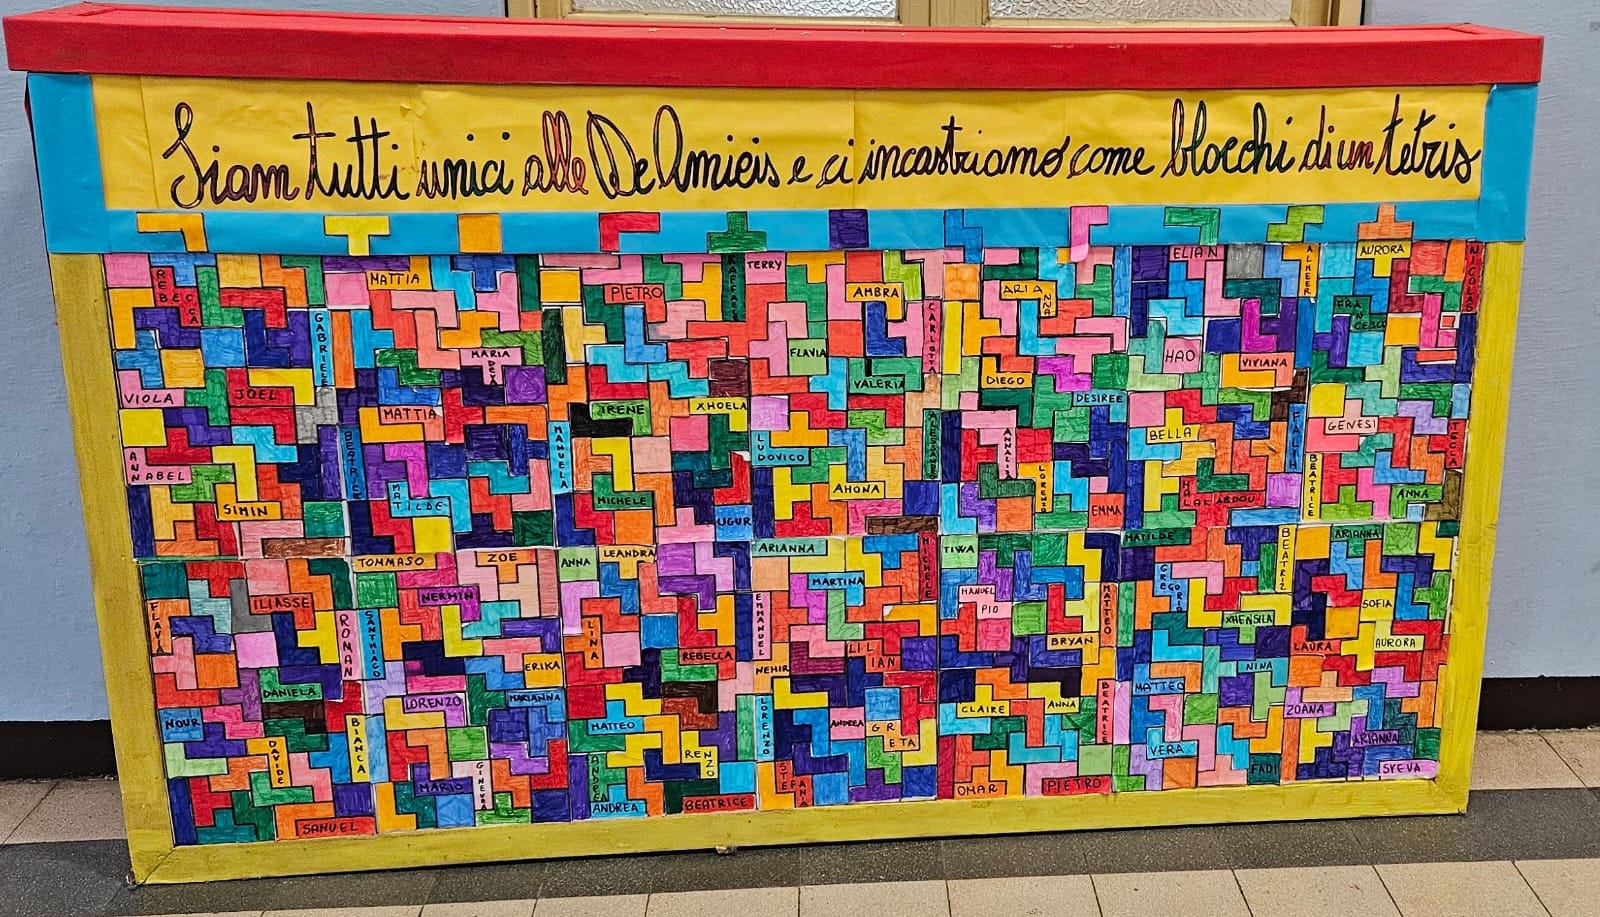 Siam tutti unici alle De Amicis e ci incastriamo come blocchi di un tetris
REBECCA
MATTIA
PIETRO
RAFFAELE
TERRY
AMBRA
ARIANNA
ELIAN
ALHEER
AURORA
NICOLAS
GABRIELE
MARIA
FLAVIA
CARLOTTA
HAO
VIVIANA
FRANCESCO
VIOLA
JOEL
MATTIA
IRENE
XHOELA
VALERIA
DIEGO
DESIREE
GENESI
ANABEL
BEATRICE
MANUELA
LUDOVICO
BELLA
TECLA
SIMIN
MATILDE
MICHELE
UGUR
AHONA
LORENZO
EMMA
ABDOU
BEATRICE
ANNA
TOMMASO
ZOE
ANNA
LEANDRA
ARIANNA
MICHELE
TIWA
MATILDE
BEATRIZ
ARIANNA
FLAVIA
ILIASSE
NERMIN
MARTINA
MANUEL
PIO
MATTEO
GREGORIO
SOFIA
ROMAN
SANTHIAGO
LINA
EMMANUEL
LILIAN
BRYAN
XHENSILA
LAURA
AURORA
DANIELA
ERIKA
REBECCA
NEHIR
NINA
LORENZO
MARIANNA
CLAIRE
ANNA
BEATRICE
MATTEO
ZOANA
NOUR
BIANCA
MATTEO
LORENZO
ANDREA
GRETA
VERA
ARIANNA
DAVIDE
RENZO
MARIO
GINEVRA
ANDREA
ANDREA
BEATRICE
STEFANA
OMAR
PIETRO
FADI
SVEVA
SAMUEL